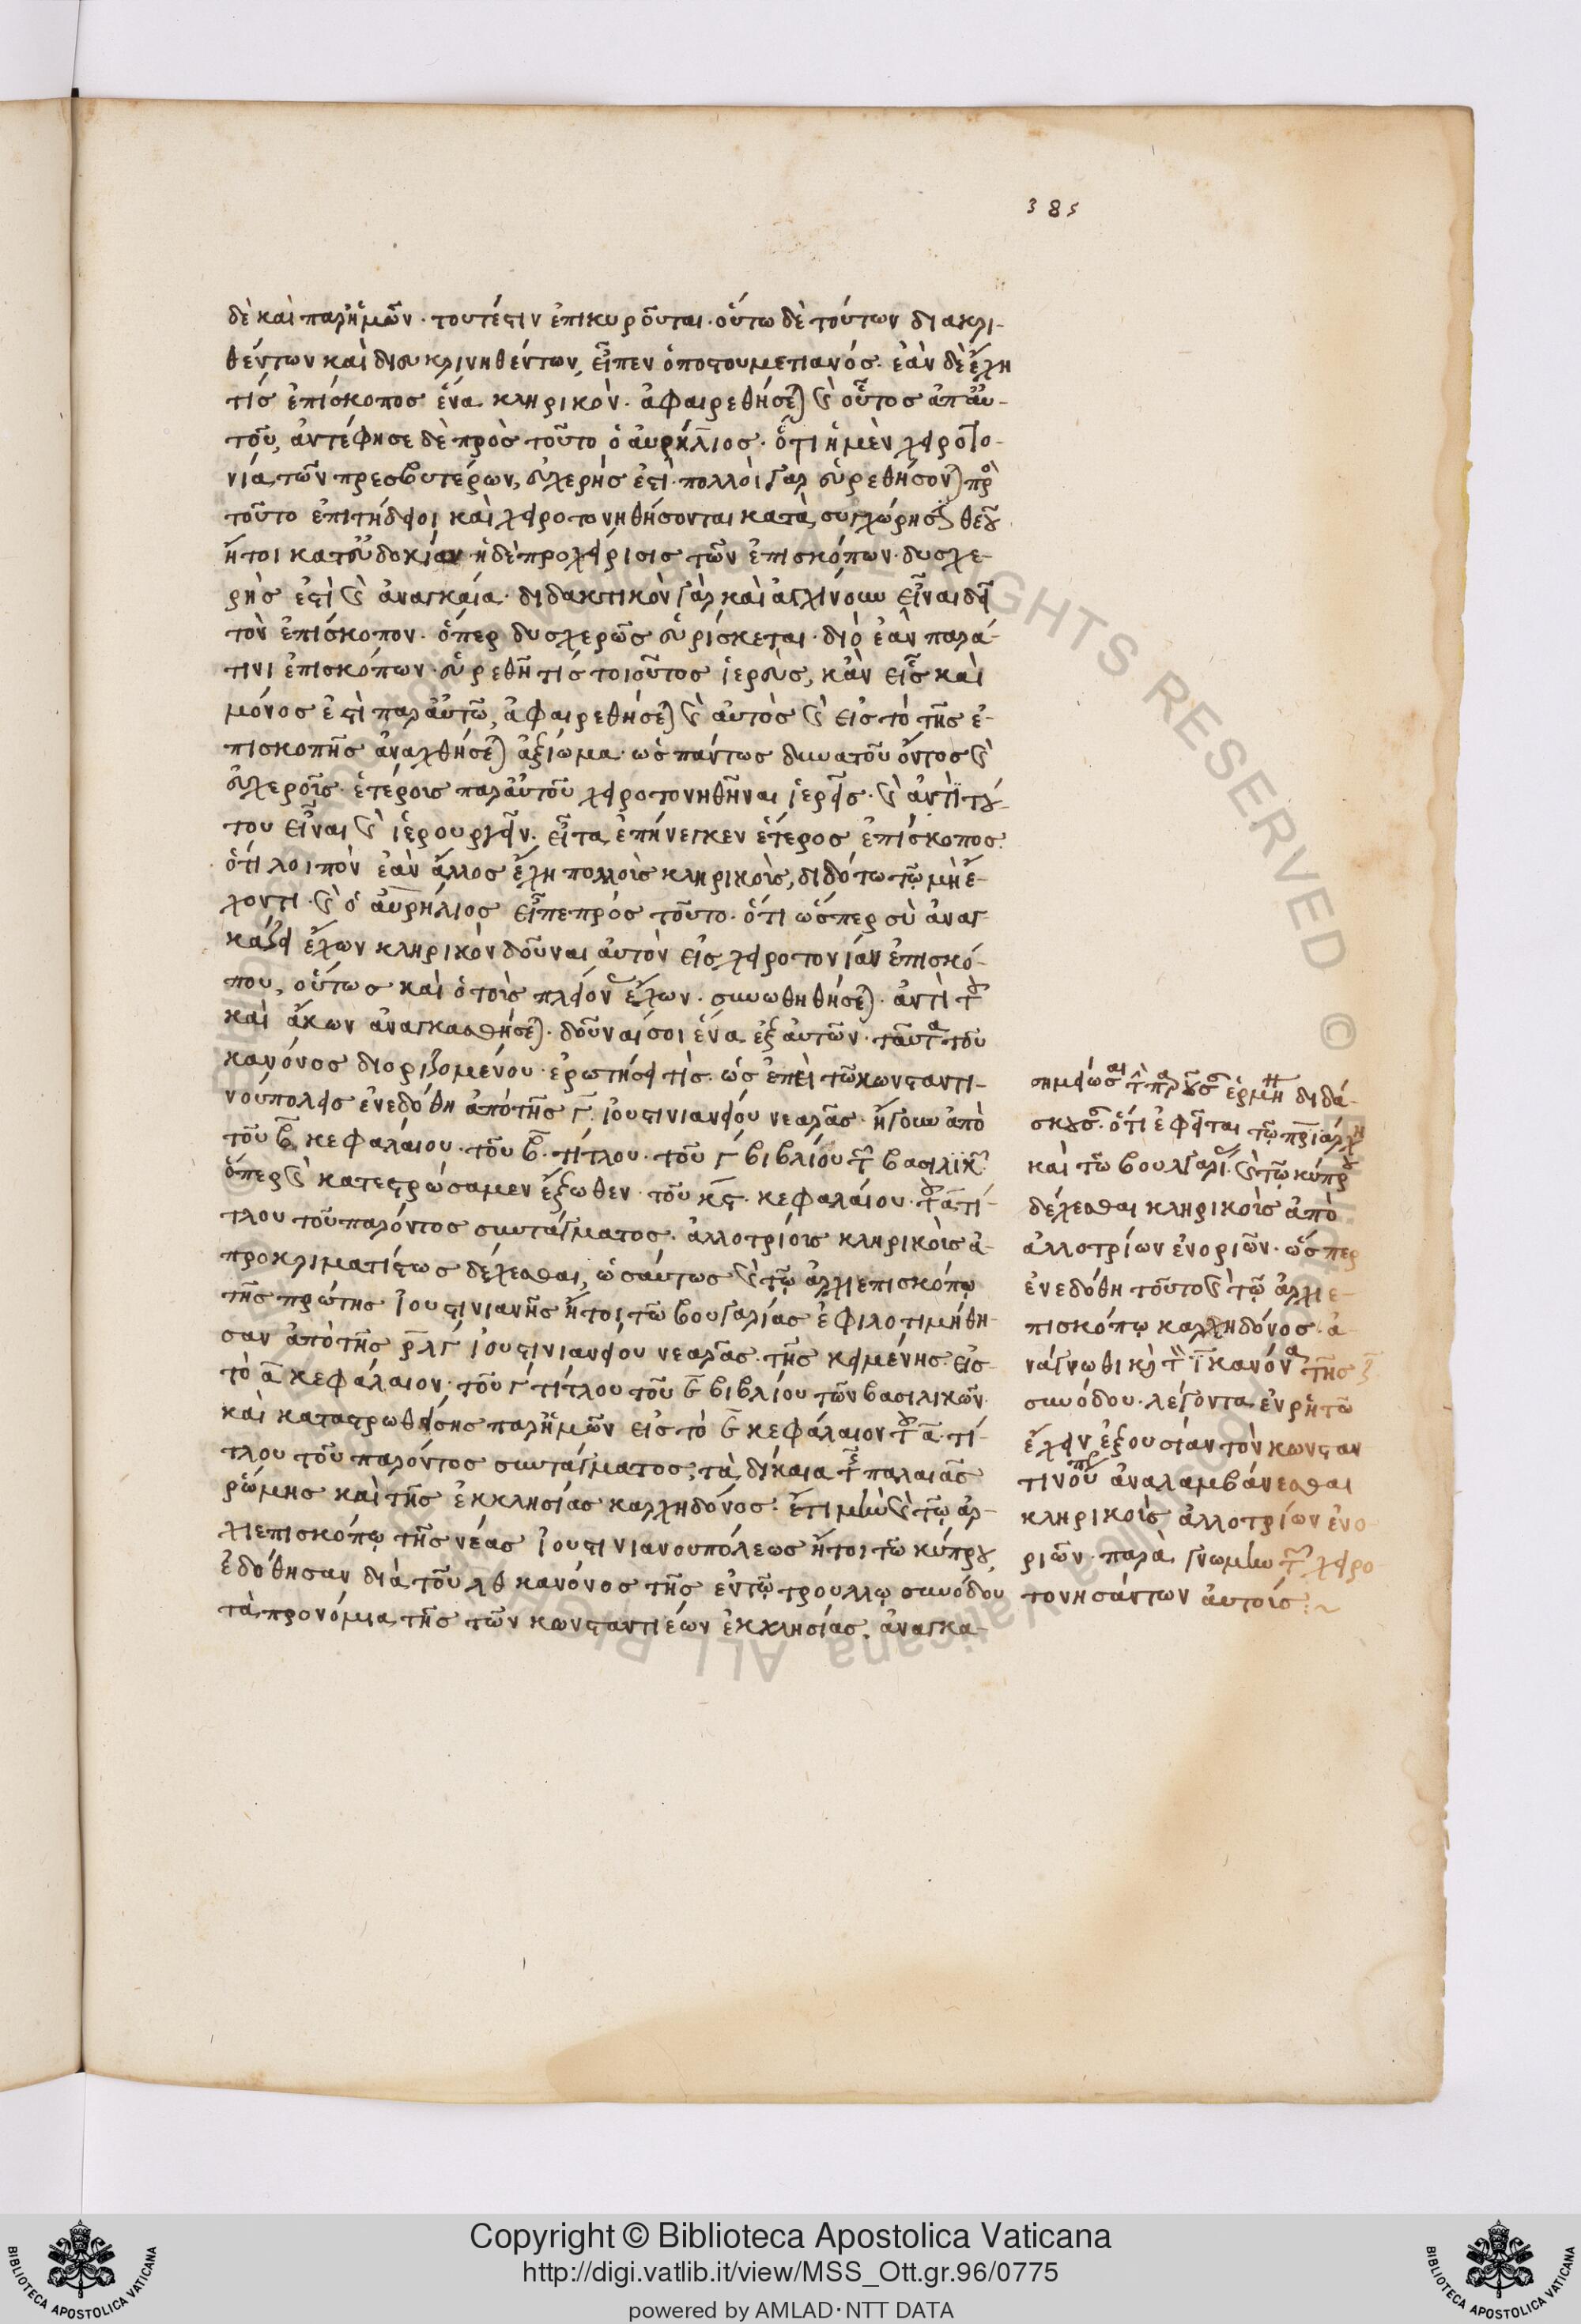 385
δὲ καὶ παρ' ἡμῶν· τουτέστιν ἐπικυροῦται· οὕτω δὲ τούτων διακρι-
θέντων καὶ διευκρινηθέντων, εἶπεν ὁ ποστουμετιανός· ἐὰν δὲ ἔχη
τίς ἐπίσκοπος ἕνα κληρικὸν· ἀφαιρεθήσεται καὶ οὗτος ἀπ' αὐ-
τοῦ, ἀντέφησε δὲ πρὸς τοῦτο ὁ αὐρήλιος· ὅτι ἡ μὲν χειροτο-
νία τῶν πρεσβυτέρων, εὐχερής ἐστὶ· πολλοὶ γὰρ εὑρεθήσονται πρὸς
τοῦτο ἐπιτήδειοι καὶ χειροτονηθήσονται κατὰ συγχώρησιν θεοῦ
ἤτοι κατ' εὐδοκίαν ἡ δὲ προχείρισις τῶν ἐπισκόπων· δυσχε-
ρὴς ἐστὶ καὶ ἀναγκαία· διδακτικὸν γὰρ καὶ ἀγχίνουν εἶναι δεῖ
τὸν ἐπίσκοπον· ὅπερ δυσχερῶς εὑρίσκεται· διὸ ἐὰν παρά-
τινι ἐπισκόπων· εὑρεθῆ τίς τοιοῦτος ἱερεὺς, κἂν εἷς καὶ
μόνος ἐστὶ παρ' αὐτῶ, ἀφαιρεθήσεται καὶ αὐτὸς καὶ εἰς τὸ τῆς ἐ-
πισκοπῆς ἀναχθήσεται ἀξίωμα· ὡς πάντως δυνατοῦ ὄντος καὶ
εὐχεροῦς· ἑτέρους παρ' αὐτοῦ χειροτονηθῆναι ἱερεῖς· καὶ ἀντὶ τού-
του εἶναι καὶ ἱερουργεῖν· εἶτα ἐπήνεγκεν ἕτερος ἐπίσκοπος·
ὅτι λοιπὸν ἐὰν ἄλλος ἔχη πολλοὺς κληρικοὺς, διδότω τῷ μὴ ἔ-
χοντι· καὶ ὁ αὐρήλιος εἶπε πρὸς τοῦτο· ὅτι ὥσπερ σὺ ἀναγ
κάζει ἔχων κληρικὸν δοῦναι αὐτὸν εἰς χειροτονίαν ἐπισκό-
που, οὕτως καὶ ὁ τοὺς πλείονας ἔχων· συνωθηθήσεται· ἀντὶ τοῦ
καὶ ἄκων ἀναγκασθήσεται· δοῦναί σοι ἕνα ἐξ αὐτῶν· ταῦτα τοῦ
κανόνος διοριζομένου· ἐρωτήσει τίς· ὡς ἐπεὶ τῶ κωνσταντι-
νουπόλεως ἐνεδόθη ἀπὸ τῆς γ. ἰουστινιανείου νεαρᾶς· ἤγουν ἀπὸ
τοῦ β κεφαλαίου· τοῦ β. τίτλου· τοῦ γ βιβλίου τῶν βασιλικῶν
ὅπερ καὶ κατεστρώσαμεν ἔξωθεν· τοῦ κϛ· κεφαλαίου· τοῦ α τί-
τλου τοῦ παρόντος συντάγματος· ἀλλοτρίους κληρικοὺς ἀ-
προκριματίστως δέχεσθαι, ὡσαύτως καὶ τῷ ἀρχιεπισκόπῳ
τῆς πρώτης ἰουστινιανῆς ἤτοι τῶ βουλγαρίας ἐφιλοτιμήθη-
σαν ἀπὸ τῆς ρλγ ἰουστινιανείου νεαρᾶς· τῆς κειμένης εἰς
τὸ α κεφάλαιον· τοῦ γ τίτλου τοῦ ε βιβλίου τῶν βασιλικῶν
καὶ καταστρωθείσης παρ' ἡμῶν εἰς τὸ ε κεφάλαιον τοῦ α τί-
τλου τοῦ παρόντος συντάγματος, τὰ δίκαια τῆς παλαιᾶς
ῥώμης καὶ τῆς ἐκκλησίας καλχηδόνος· ἔτι μὴν καὶ τῷ ἀρ-
χιεπισκόπῳ τῆς νέας ἰουστινιανουπόλεως ἤτοι τῶ κύπρου,
ἐδόθησαν διὰ τοῦ λθ κανόνος τῆς ἐν τῷ τρουλλῳ συνόδου
τὰ προνόμια τῆς τῶν κωνσταντιέων ἐκκλησίας· ἀναγκα-
σημείωσαι τὴν παροῦσαν ἑρμηνείαν διδά-
σκουσαν ὅτι ἐφεῖται τῷ πατριάρχη
καὶ τῶ βουλγαρίας καὶ τῷ κύπρου
δέχεσθαι κληρικοὺς ἀπὸ
ἀλλοτρίων ἐνοριῶν· ὥσπερ
ἐνεδόθη τοῦτο καὶ τῷ ἀρχιε-
πισκόπῳ καλχηδόνος· ἀ-
νάγνωθι καὶ τὸν κανόνα τῆς
συνόδου· λέγοντα ἐν ῥητῶ
ἔχειν ἐξουσίαν τὸν κωνσταν
τινουπόλεως ἀναλαμβάνεσθαι
κληρικοὺς ἀλλοτρίων ἐνο-
ριῶν· παρὰ γνώμην τῶν χειρο
τονησάντων αὐτούς:~
Copyright © Biblioteca Apostolica Vaticana
http://digi.vatlib.it/view/MSS_Ott.gr.96/0775
powered by AMLAD·NTT DATA
BIBLIOTECA APOSTOLICA VATICANA
BIBLIOTECA APOSTOLICA VATICANA